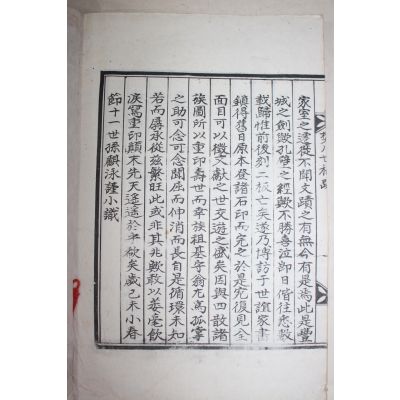 家室之遷徙不聞文蹟之有無今有是焉此是豐
城之劍歟孔壁之經歟不勝喜泣卽日偕往悉數
載歸惟前後刻二板亡矣遂乃博訪于世誼家書
鎮得舊日原本登諸石印而完之於是先復見全
面目可以徵文獻之世交遊之盛矣因與四散諸
族圖所以重印壽世而幸族祖基守翁尤爲孤掌
之助可念可念聞屈而伸消而長自是循環未知
若而孱承從玆繁旺此或非其兆歟敢以萎毫飮
淚寫重印顚末先天遙遙於乎欷矣歲己未小春
節十一世孫麒泳謹小識